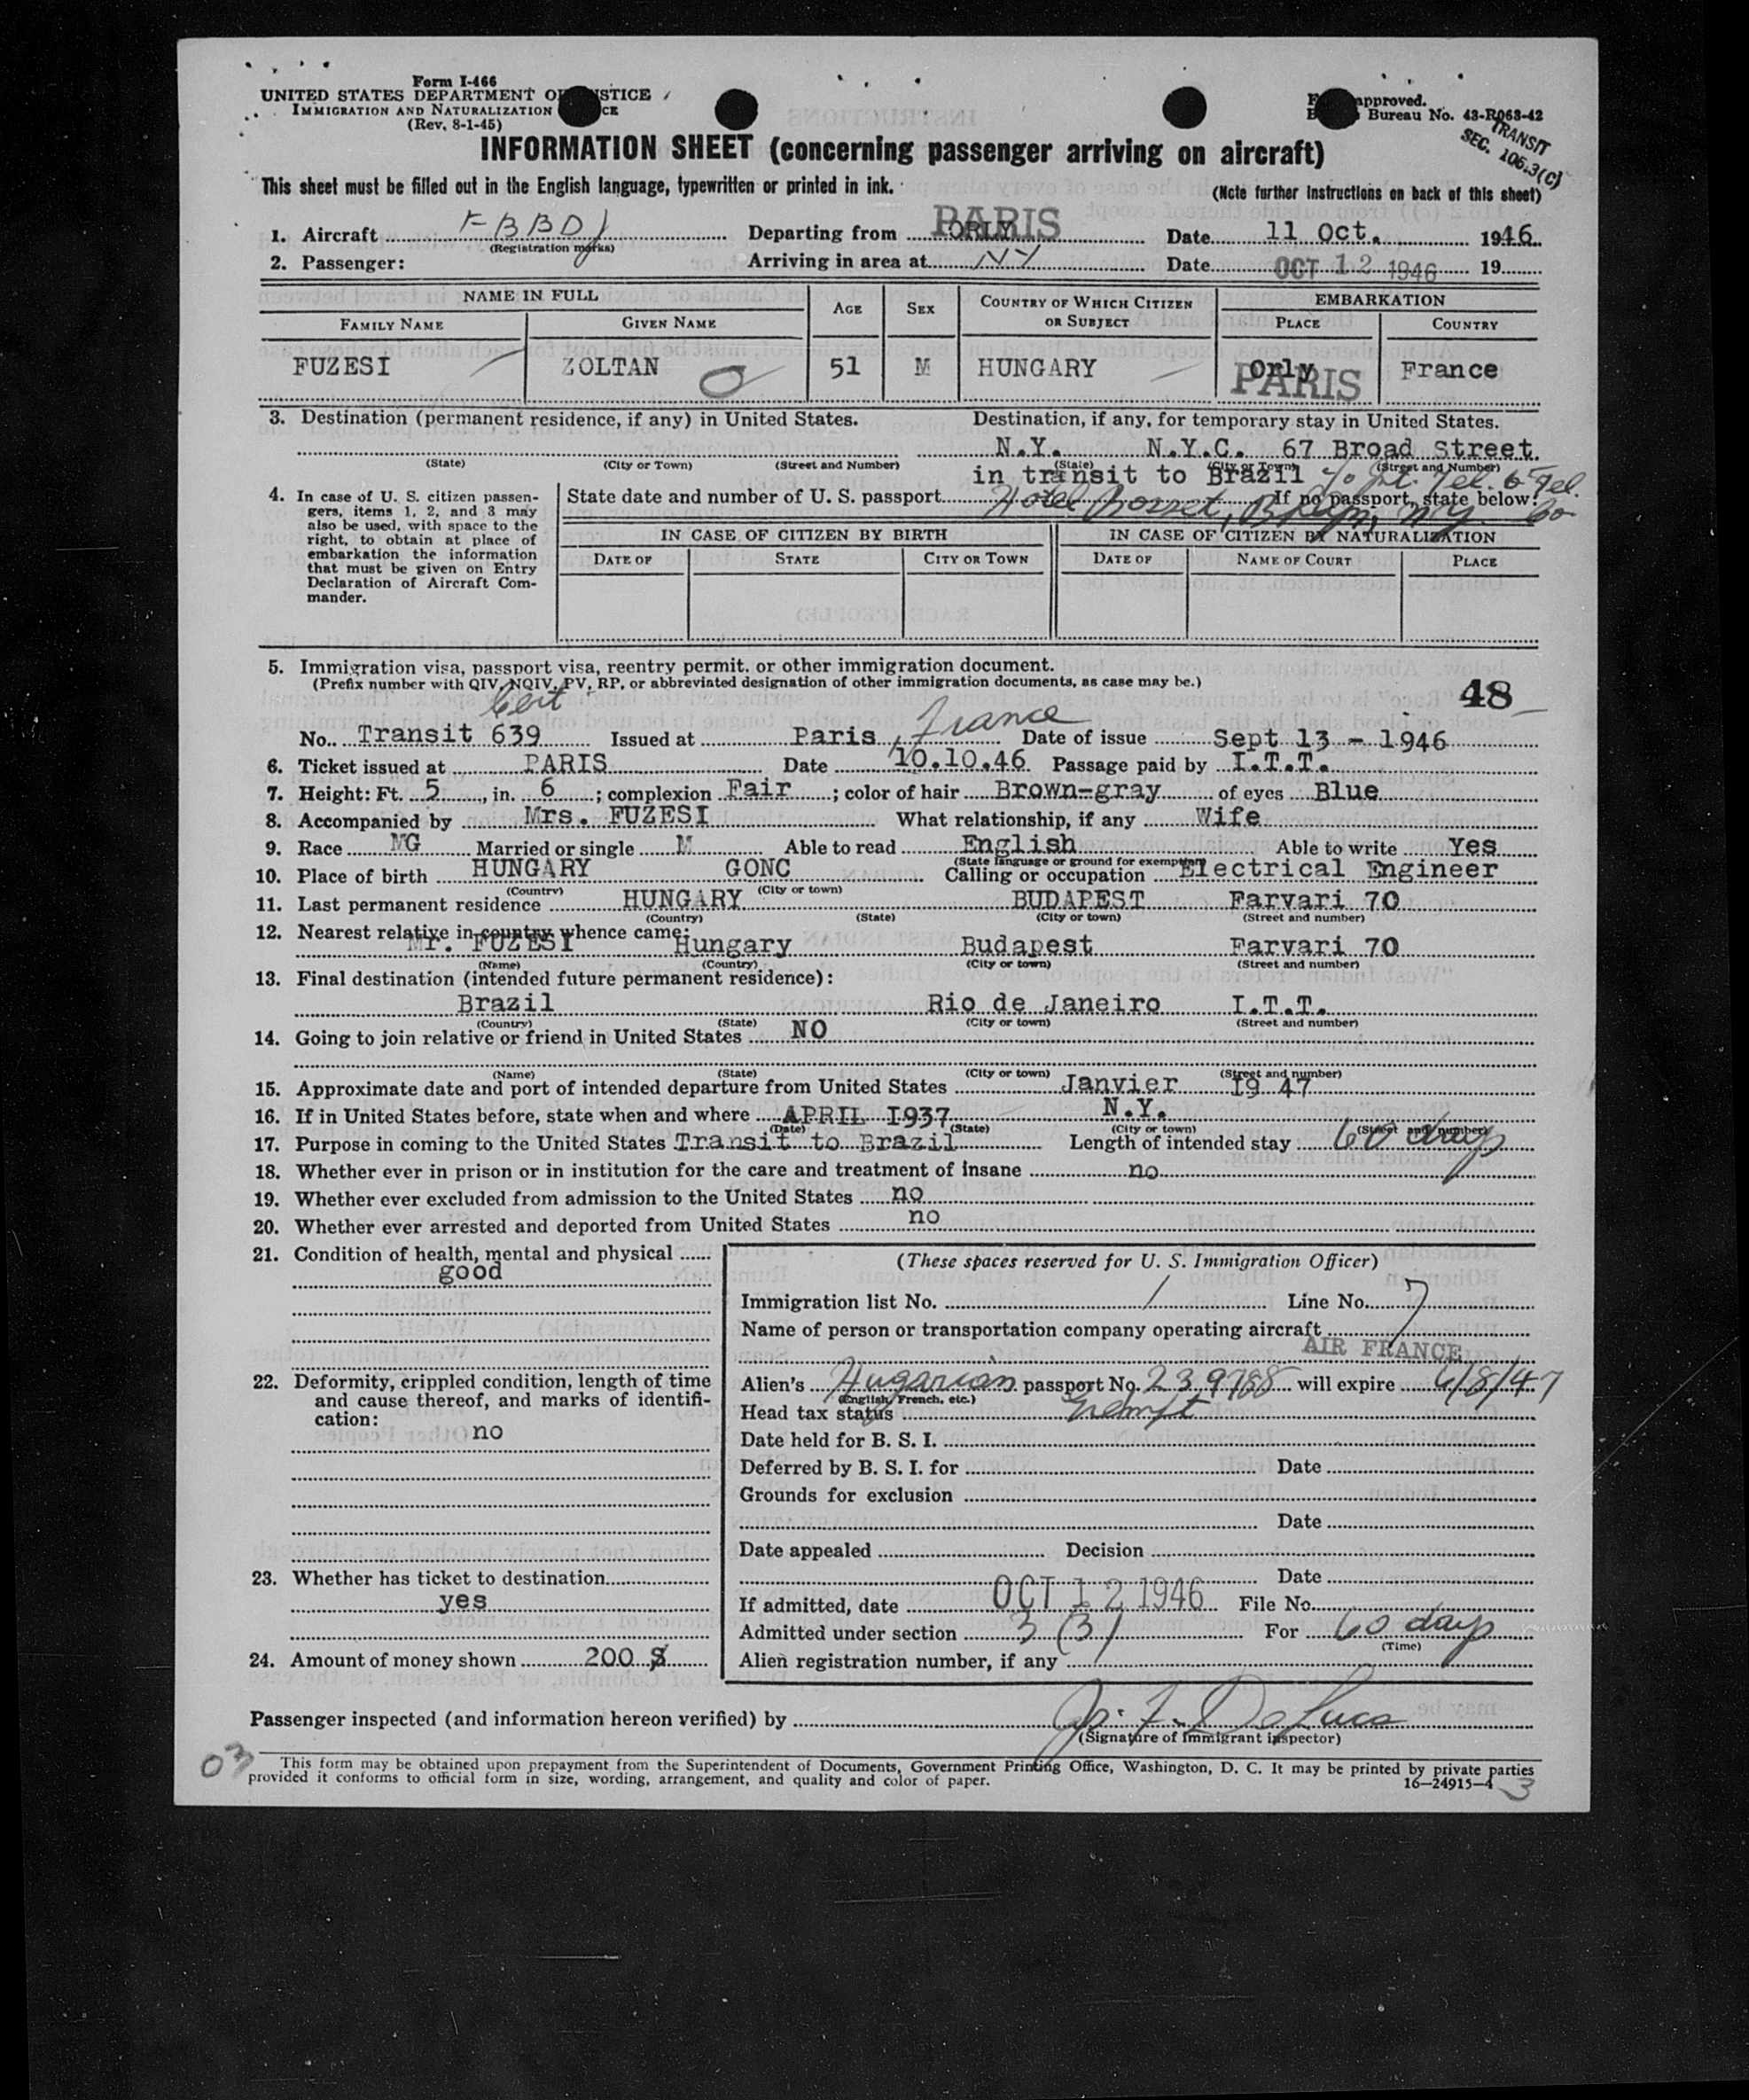 Form I-466
UNITED STATES DEPARTMENT OF JUSTICE
IMMIGRATION AND NATURALIZATION
(Rev. 8-1-45)
approved.
Bureau No. 43-R063-42
TRANSIT
SEC. 106.3(C)
INFORMATION SHEET (concerning passenger arriving on aircraft)
This sheet must be filled out in the English language, typewritten or printed in ink.
(Note further instructions on back of this sheet)
1. Aircraft FBBDJ Departing from ORLY PARIS Date 11 Oct. 1946
(Registration marks)
2. Passenger: Arriving in area at NY Date OCT 12 1946 19
NAME IN FULL AGE SEX COUNTRY OF WHICH CITIZEN OR SUBJECT EMBARKATION
FAMILY NAME GIVEN NAME PLACE COUNTRY
FUZESI ZOLTAN 51 M HUNGARY Orly PARIS France
3. Destination (permanent residence, if any) in United States. Destination, if any, for temporary stay in United States.
N.Y. N.Y.C. 67 Broad Street.
(State) (City or Town) (Street and Number) (State) (City or Town) (Street and Number)
in transit to Brazil c/o Int. Tel. & Tel. Co
4. In case of U. S. citizen passengers, items 1, 2, and 3 may also be used, with space to the right, to obtain at place of embarkation the information that must be given on Entry Declaration of Aircraft Commander.
State date and number of U. S. passport If no passport, state below:
Hotel Bosset, Bklyn, NY.
IN CASE OF CITIZEN BY BIRTH IN CASE OF CITIZEN BY NATURALIZATION
DATE OF STATE CITY OR TOWN DATE OF NAME OF COURT PLACE
5. Immigration visa, passport visa, reentry permit, or other immigration document.
(Prefix number with QIV, NQIV, PV, RP, or abbreviated designation of other immigration documents, as case may be.)
48
Cert
No. Transit 639 Issued at Paris, France Date of issue Sept 13 - 1946
6. Ticket issued at PARIS Date 10.10.46 Passage paid by I.T.T.
7. Height: Ft. 5, in. 6; complexion Fair; color of hair Brown-gray of eyes Blue
8. Accompanied by Mrs. FUZESI What relationship, if any Wife
9. Race MG Married or single M Able to read English Able to write Yes
(State language or ground for exemption)
10. Place of birth HUNGARY GONC Calling or occupation Electrical Engineer
(Country) (City or town)
11. Last permanent residence HUNGARY BUDAPEST Farvari 70
(Country) (State) (City or town) (Street and number)
12. Nearest relative in country whence came:
Mr. FUZESI Hungary Budapest Farvari 70
(Name) (Country) (City or town) (Street and number)
13. Final destination (intended future permanent residence):
Brazil Rio de Janeiro I.T.T.
(Country) (State) (City or town) (Street and number)
14. Going to join relative or friend in United States NO
(Name) (State) (City or town) (Street and number)
15. Approximate date and port of intended departure from United States Janvier I9 47
16. If in United States before, state when and where APRIL I937 N.Y.
(Date) (State) (City or town) (Street and number)
17. Purpose in coming to the United States Transit to Brazil Length of intended stay 60 days
18. Whether ever in prison or in institution for the care and treatment of insane no
19. Whether ever excluded from admission to the United States no
20. Whether ever arrested and deported from United States no
21. Condition of health, mental and physical
good
22. Deformity, crippled condition, length of time and cause thereof, and marks of identification:
no
23. Whether has ticket to destination
yes
24. Amount of money shown 200 $
(These spaces reserved for U. S. Immigration Officer)
Immigration list No. 1 Line No. 7
Name of person or transportation company operating aircraft
AIR FRANCE
Alien's Hugarian passport No. 239788 will expire 4/8/47
(English, French, etc.)
Head tax status Exempt
Date held for B. S. I.
Deferred by B. S. I. for Date
Grounds for exclusion
Date
Date appealed Decision
Date
If admitted, date OCT 12 1946 File No.
Admitted under section 3 (3) For 60 days
(Time)
Alien registration number, if any
Passenger inspected (and information hereon verified) by Jos. F. DeLuca
(Signature of immigrant inspector)
03
This form may be obtained upon prepayment from the Superintendent of Documents, Government Printing Office, Washington, D. C. It may be printed by private parties
provided it conforms to official form in size, wording, arrangement, and quality and color of paper.
16—24915-4
3